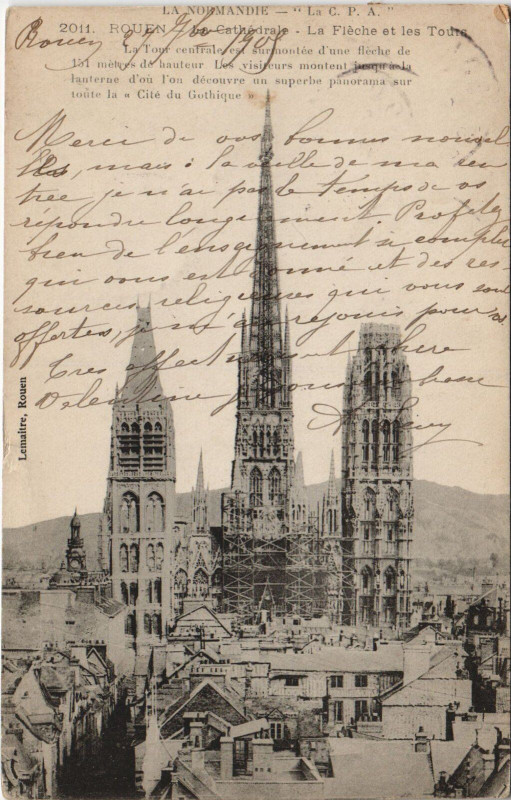 LA NORMANDIE — "La C. P. A."
2011. ROUEN - La Cathédrale - La Flèche et les Tours
Rouen 1908
La Tour centrale est surmontée d'une flèche de
151 mètres de hauteur. Les visiteurs montent jusqu'à la
lanterne d'où l'on découvre un superbe panorama sur
toute la « Cité du Gothique »
Merci de vos bonnes nouvel
les, mais à la veille de ma ren
trée, je n'ai pas le temps de vs
répondre longuement. Profitez
bien de l'enseignement si complet
qui vous est donné et des res-
sources religieuses qui vous sont
offertes, je m'en réjouis pour vs
Très affectueusement chère
je vous
Lemaitre, Rouen